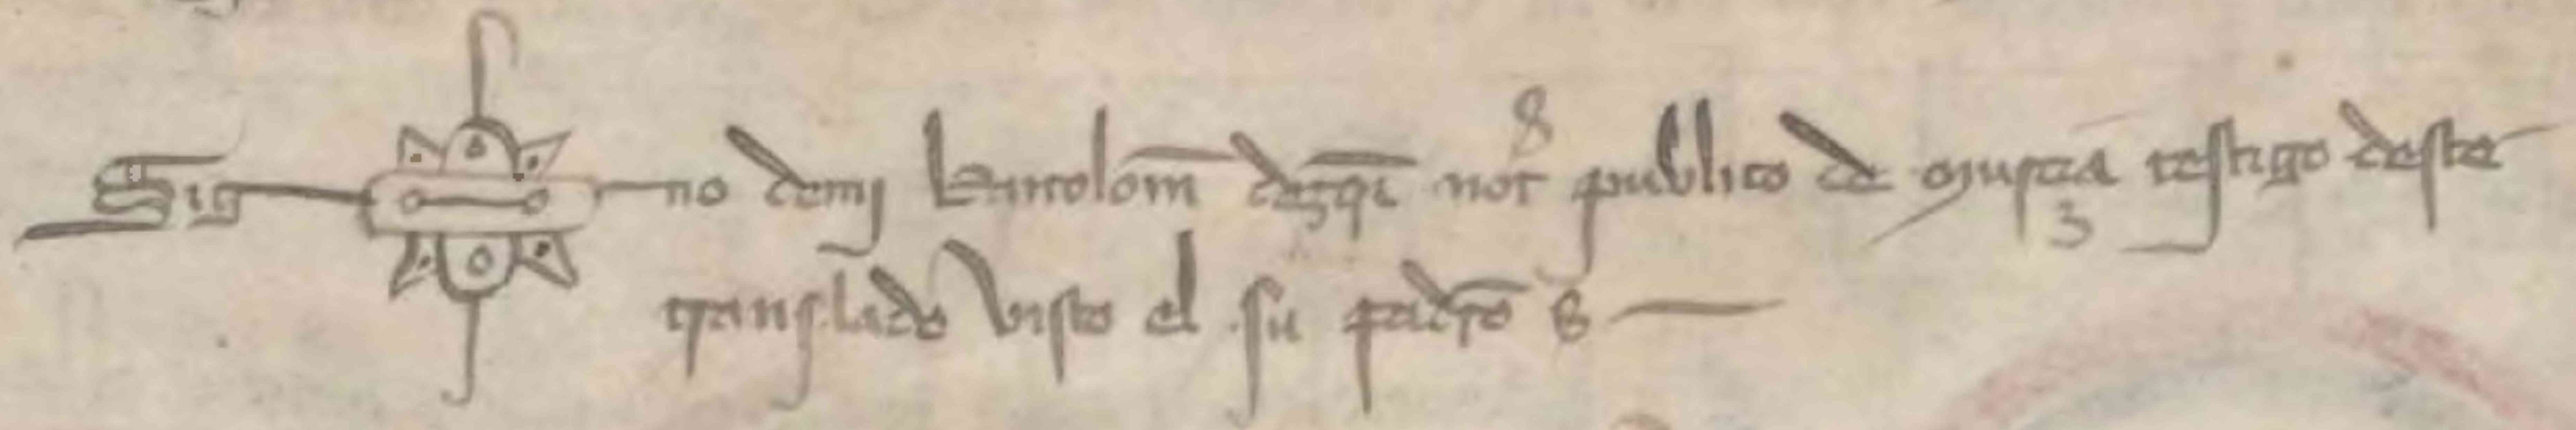 Sig no de mj bartolom desqr not publico de mursia testigo deste
translado visto el su padro